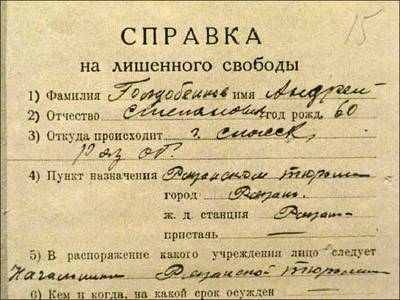 15
СПРАВКА
на лишенного свободы
1) Фамилия имя Андрей
2) Отчество Степанович год рожд. 60
3) Откуда происходит г. Спасск,
Ряз. об.
4) Пункт назначения Рязанской тюрьмы
город Рязань.
ж. д. станция Рязань
пристань
5) В распоряжение какого учреждения лицо следует
Начальника Рязанской тюрьмы
6) Кем и когда, на какой срок осужден